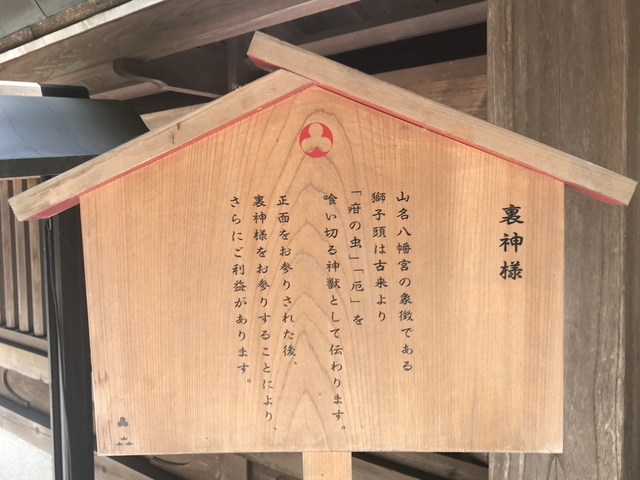 裏神様
山名八幡宮の象徴である
獅子頭は古来より
「疳の虫」「厄」を
喰い切る神獣として伝わります。
正面をお参りされた後、
裏神様をお参りすることにより、
さらにご利益があります。